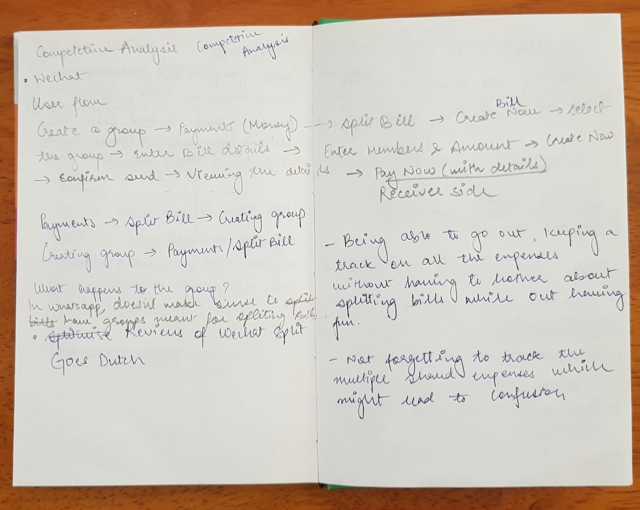 Competitive Analysis Competitive Analysis
• Wechat
User flow
Create a group → Payments (Money) → Split Bill → Create Bill Now → Select
the group → Enter Bill details → Enter Members & Amount → Create Now
→ Confirm send → Viewing the details → Pay Now (with details)
Receiver side
Payments → Split Bill → Creating group
Creating group → Payments/Split Bill
What happens to the group?
In whatsapp, doesn't make sense to split
bills have groups meant for spliting bills
• Optimise Reviews of Wechat Split
Goes Dutch
- Being able to go out, keeping a
track on all the expenses
without having to bother about
splitting bills while out having
fun.
- Not forgetting to track the
multiple shared expenses which
might lead to confusion